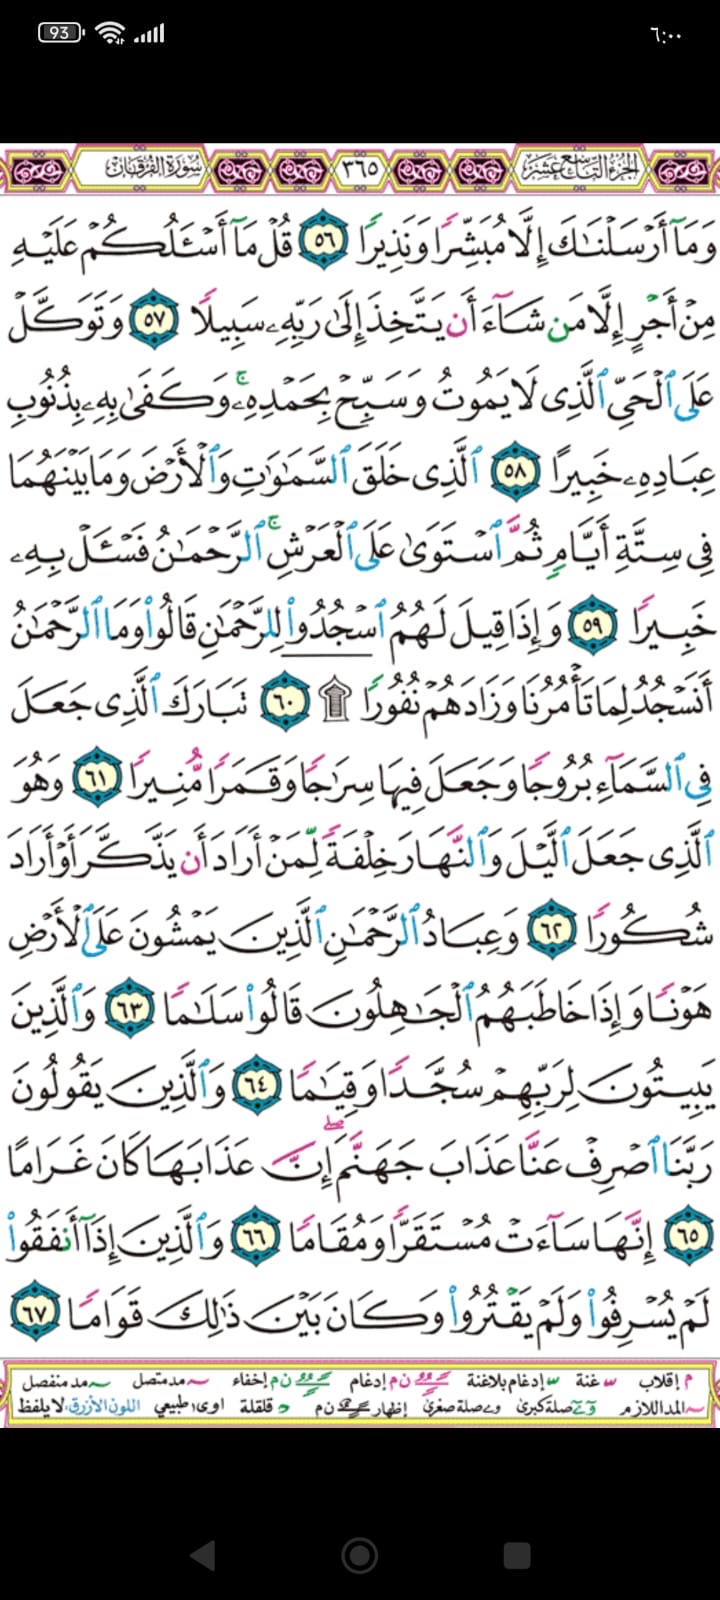 93 ٦:٠٠
الجزء التاسع عشر ٣٦٥ سورة الفرقان
وَمَآ أَرْسَلْنَٰكَ إِلَّا مُبَشِّرًا وَنَذِيرًا ٥٦ قُلْ مَآ أَسْـَٔلُكُمْ عَلَيْهِ
مِنْ أَجْرٍ إِلَّا مَن شَآءَ أَن يَتَّخِذَ إِلَىٰ رَبِّهِۦ سَبِيلًا ٥٧ وَتَوَكَّلْ
عَلَى ٱلْحَىِّ ٱلَّذِى لَا يَمُوتُ وَسَبِّحْ بِحَمْدِهِۦ ۚ وَكَفَىٰ بِهِۦ بِذُنُوبِ
عِبَادِهِۦ خَبِيرًا ٥٨ ٱلَّذِى خَلَقَ ٱلسَّمَٰوَٰتِ وَٱلْأَرْضَ وَمَا بَيْنَهُمَا
فِى سِتَّةِ أَيَّامٍ ثُمَّ ٱسْتَوَىٰ عَلَى ٱلْعَرْشِ ۚ ٱلرَّحْمَٰنُ فَسْـَٔلْ بِهِۦ
خَبِيرًا ٥٩ وَإِذَا قِيلَ لَهُمُ ٱسْجُدُوا۟ لِلرَّحْمَٰنِ قَالُوا۟ وَمَا ٱلرَّحْمَٰنُ
أَنَسْجُدُ لِمَا تَأْمُرُنَا وَزَادَهُمْ نُفُورًا ۩ ٦٠ تَبَارَكَ ٱلَّذِى جَعَلَ
فِى ٱلسَّمَآءِ بُرُوجًا وَجَعَلَ فِيهَا سِرَٰجًا وَقَمَرًا مُّنِيرًا ٦١ وَهُوَ
ٱلَّذِى جَعَلَ ٱلَّيْلَ وَٱلنَّهَارَ خِلْفَةً لِّمَنْ أَرَادَ أَن يَذَّكَّرَ أَوْ أَرَادَ
شُكُورًا ٦٢ وَعِبَادُ ٱلرَّحْمَٰنِ ٱلَّذِينَ يَمْشُونَ عَلَى ٱلْأَرْضِ
هَوْنًا وَإِذَا خَاطَبَهُمُ ٱلْجَٰهِلُونَ قَالُوا۟ سَلَٰمًا ٦٣ وَٱلَّذِينَ
يَبِيتُونَ لِرَبِّهِمْ سُجَّدًا وَقِيَٰمًا ٦٤ وَٱلَّذِينَ يَقُولُونَ
رَبَّنَا ٱصْرِفْ عَنَّا عَذَابَ جَهَنَّمَ ۖ إِنَّ عَذَابَهَا كَانَ غَرَامًا
٦٥ إِنَّهَا سَآءَتْ مُسْتَقَرًّا وَمُقَامًا ٦٦ وَٱلَّذِينَ إِذَآ أَنفَقُوا۟
لَمْ يُسْرِفُوا۟ وَلَمْ يَقْتُرُوا۟ وَكَانَ بَيْنَ ذَٰلِكَ قَوَامًا ٦٧
م إقلاب غنة إدغام بلاغنة ن م إدغام ن م إخفاء مد متصل مد منفصل
المد اللازم صلة كبرى صلة صغرى إظهار ن م قلقلة اوى طبيعي اللون الأزرق: لا يلفظ